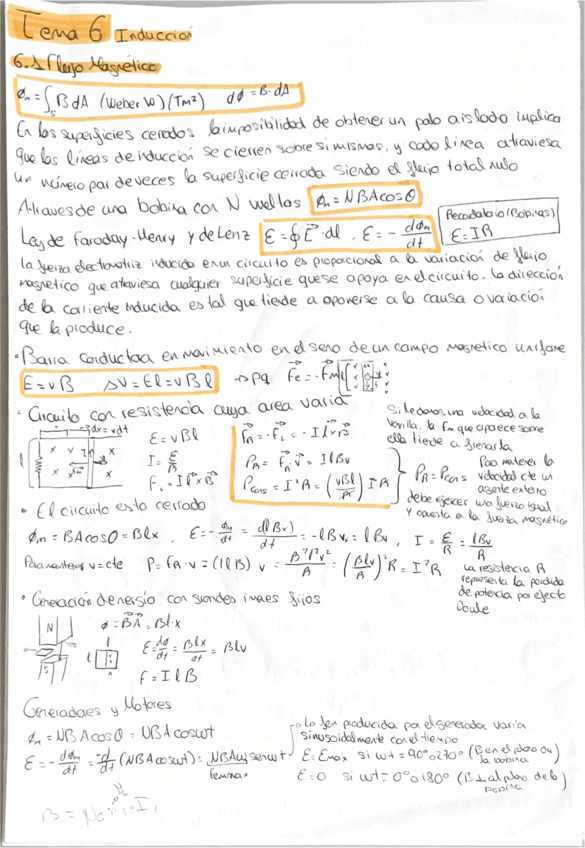 Tema 6 Inducción
6.1 Flujo Magnético
ϕm = ∫s B dA (Weber W)(Tm²) dϕ = B·dA
En las superficies cerradas la imposibilidad de obtener un polo aislado implica
que las líneas de inducción se cierren sobre si mismas, y cada línea atraviesa
un número par de veces la superficie cerrada siendo el flujo total nulo
A traves de una bobina con N vueltas ϕm = NBA cos θ
Ley de Faraday-Henry y de Lenz ε = ∮ E · dl . ε = - dϕm/dt
Recordatorio (Bobinas)
ε = IR
la fuerza electromotriz inducida en un circuito es proporcional a la variación de flujo
magnetico que atraviesa cualquier superficie que se apoya en el circuito. La dirección
de la corriente inducida es tal que tiende a oponerse a la causa o variación
que la produce.
· Barra conductora en movimiento en el seno de un campo magnetico uniforme
E = vB ΔV = El = vBl → pq Fe = -Fm
· Circuito con resistencia cuya area varía
dx = vdt
ε = vBl
I = ε/R
FA = -FL = -Il×B
PA = FA·v = IlBv
Pcons = I²R = (vBl/R) IR
Si le damos una velocidad a la
varilla, la Fm que aparece sobre
ella tiende a frenarla
PA = Pcons
Para mantener la
velocidad cte un
agente externo
debe ejercer una fuerza igual
y opuesta a la fuerza magnética
· El circuito esta cerrado
ϕm = BA cos θ = Blx , ε = - ϕm/dt = d(lBv)/dt = -lBvx = lBv , I = ε/R = lBv/R
Para mantener v = cte P = FA · v = (IlB) v = B²l²v²/R = (Blv/R)² R = I²R
La resistencia R
representa la perdida
de potencia por efecto
Joule
· Generación de energía con grandes imanes fijos
N
S
l
ϕ = BA = Bl·x
ε = dϕ/dt = Blx/dt = Blv
F = IlB
Generadores y Motores
ϕm = NBA cos θ = NBA cos ωt
ε = - dϕm/dt = -d/dt (NBA cos ωt) = NBAω sen ωt
fem max
La fem producida por el generador varía
sinusoidalmente con el tiempo
ε = Emax si ωt = 90° o 270° (B en el plano de
la bobina
ε = 0 si ωt = 0° o 180° (B ⊥ al plano de la
bobina)